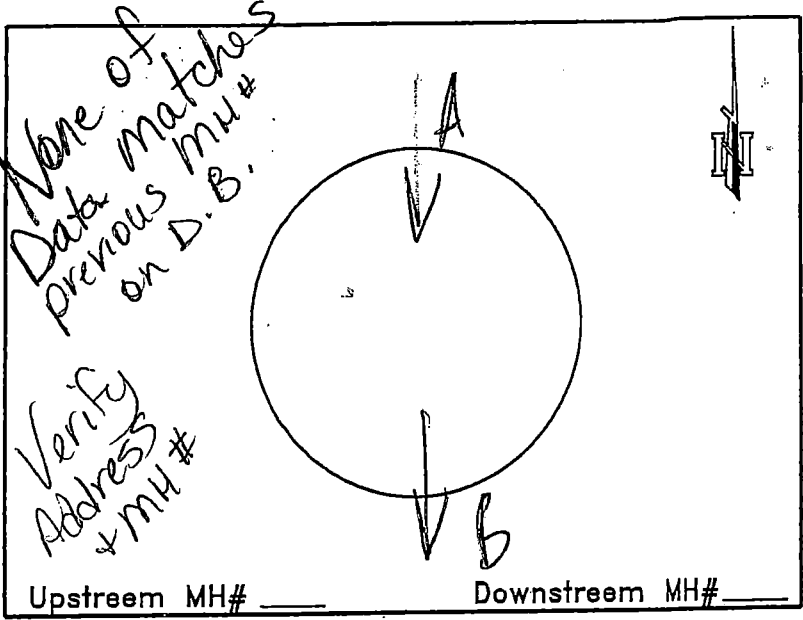 None of
Data matches
previous MH#
on D.B.
A
N
Verify
Address
+ MH #
B
Upstreem MH# ____
Downstreem MH#____